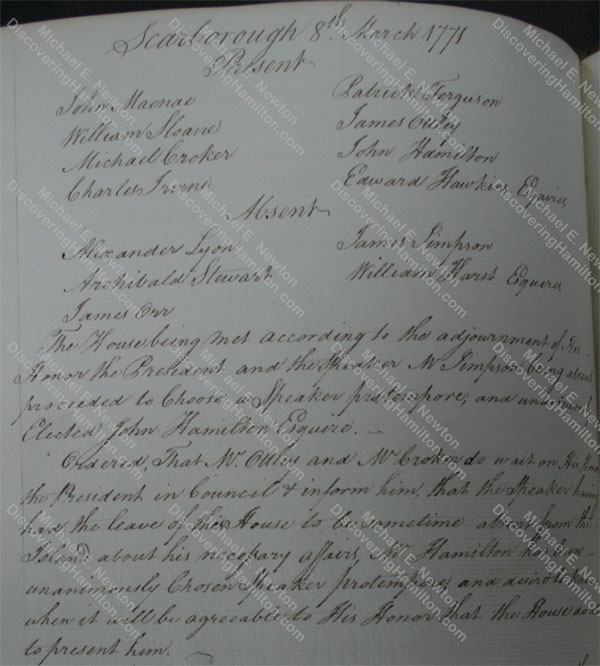 Scarborough 8th March 1771
Present
John Macnae
William Sloane
Michael Croker
Charles Irvine
Patrick Ferguson
James Ottley
John Hamilton
Edward Hawkins Esquires
Absent
Alexander Lyon
Archibald Stewart
James Orr
James Simpson
William Hurst Esquires
The House being met according to the adjournment of His
Honor the President and the Speaker Mr Simpson being absent
proceeded to Choose a Speaker protempore, and
Elected John Hamilton Esquire.
Ordered, That Mr. Ottley and Mr Croker do wait on His
the President in Council & inform him, that the Speaker having
had the leave of this House to be sometime absent from this
Island about his necessary affairs, Mr Hamilton
unanimously Chosen Speaker protempore, and desire to
when it will be agreeable to His Honor that the House do
to present him.
Michael E. Newton
DiscoveringHamilton.com